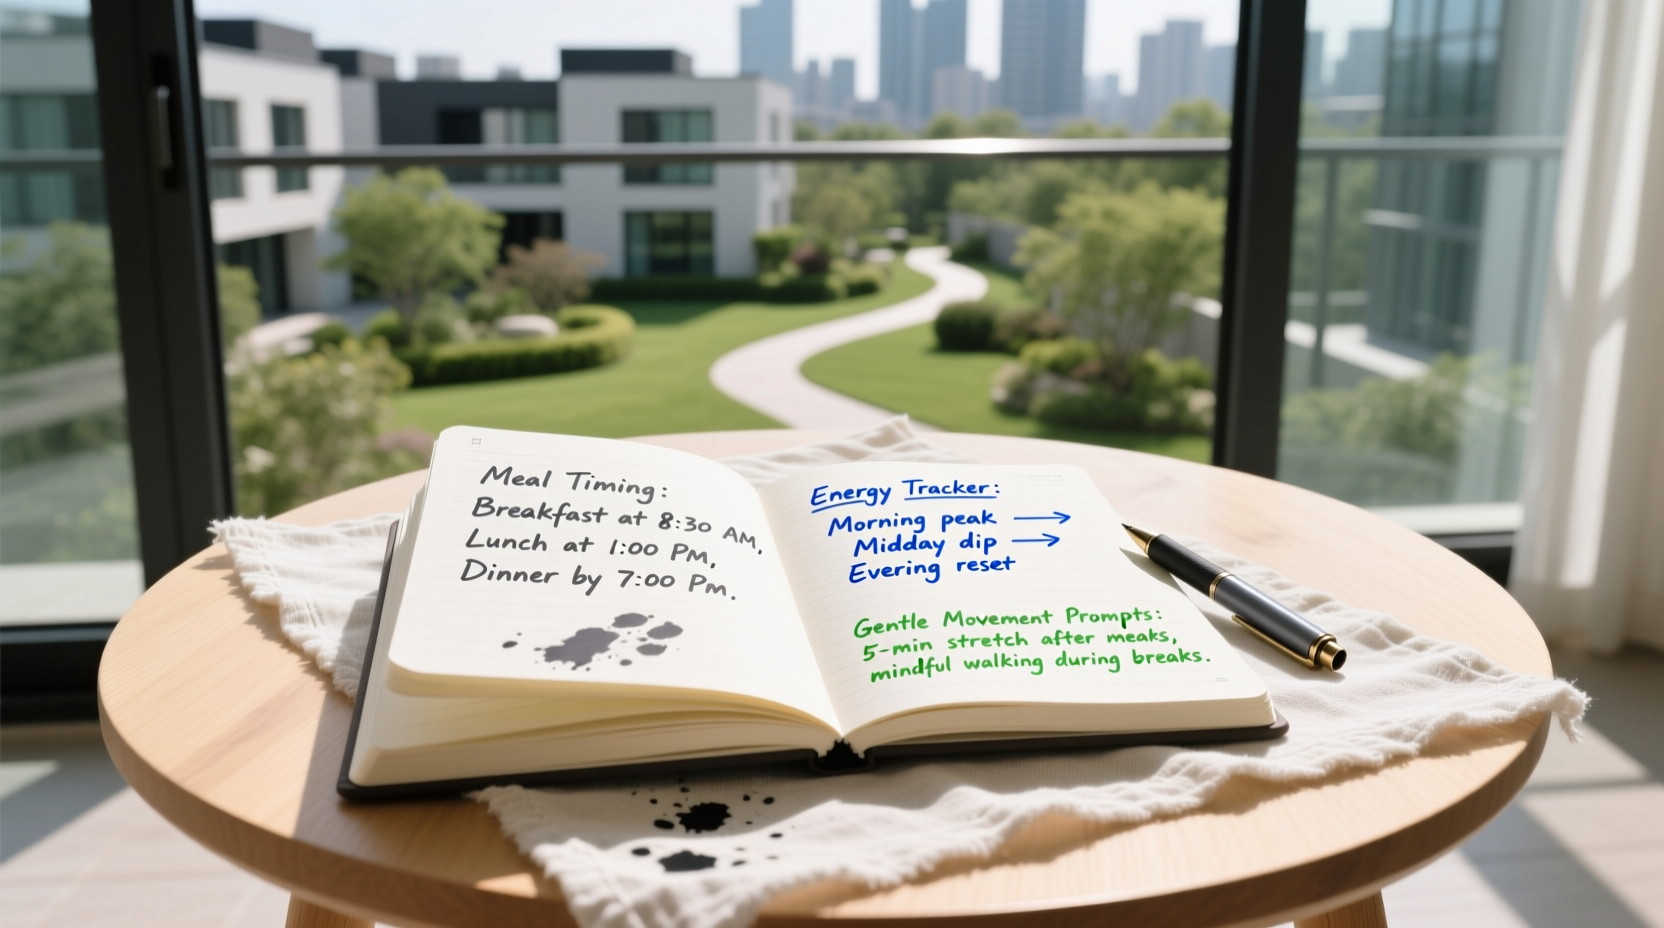 Meal Timing:
Breakfast at 8:30 AM,
Lunch at 1:00 PM,
Dinner by 7:00 PM.
Energy Tracker:
Morning peak →
Midday dip →
Evering reset
Gentle Movement Prompts:
5-min stretch after meaks,
mindful walking during breaks.